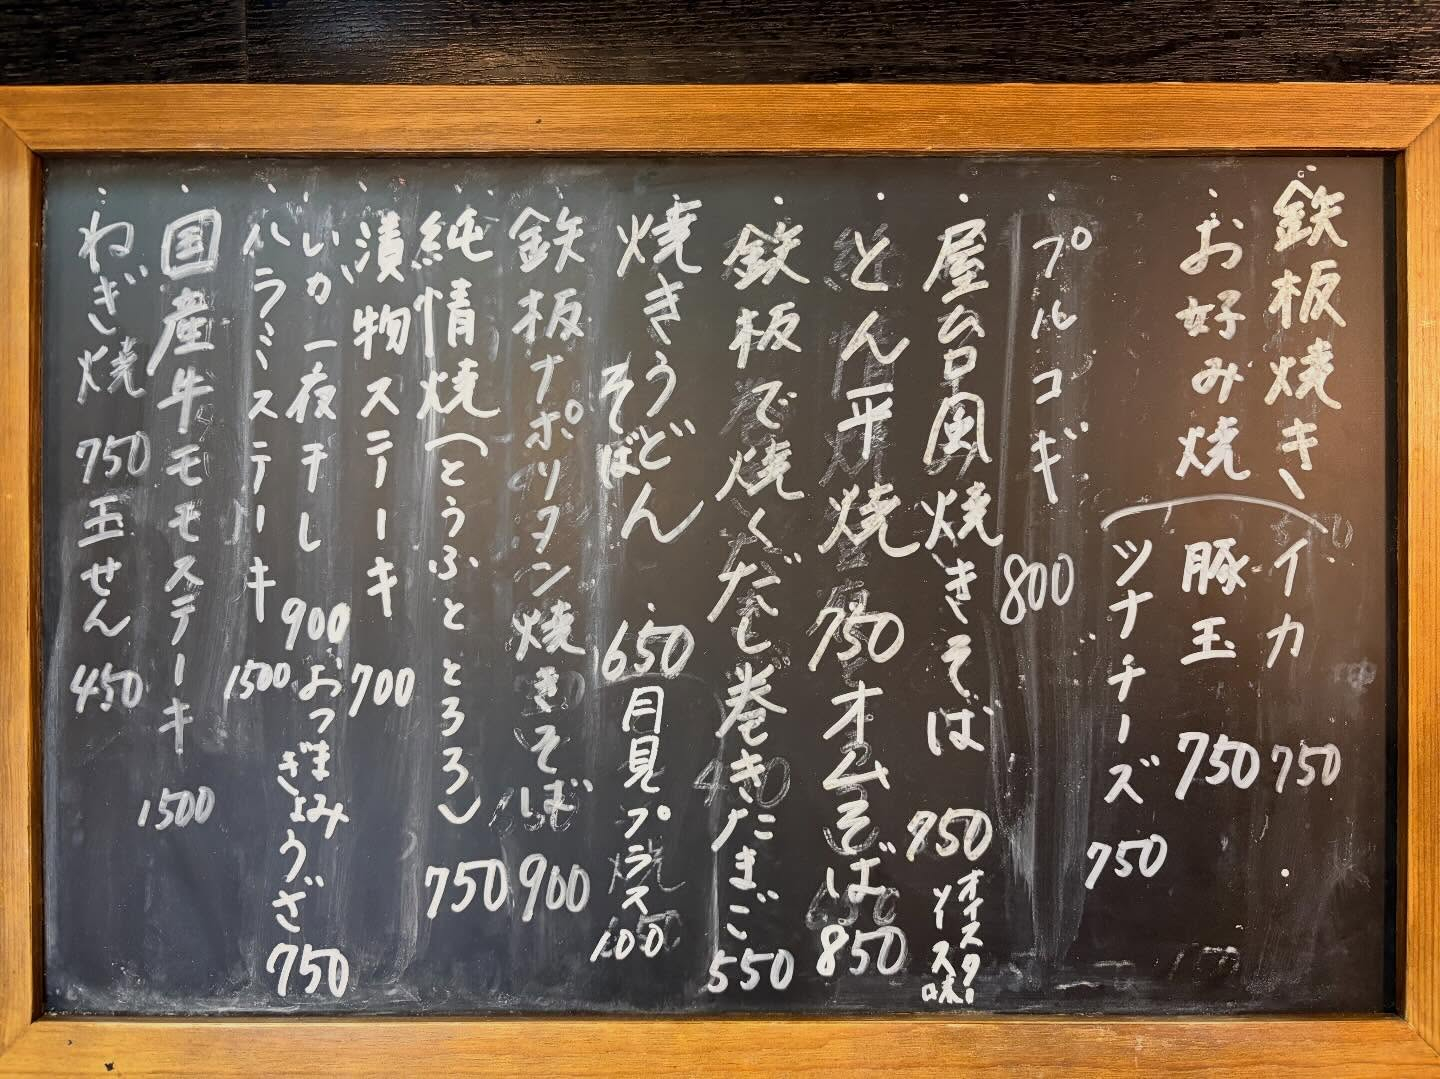 ・鉄板焼き
・お好み焼 イカ 750
豚玉 750
ツナチーズ 750
・プルコギ 800
・屋台風焼きそば 750 オイスターソース味
・とん平焼 750 オムそば 850
・鉄板で焼くだし巻きたまご 550
・焼きうどん そばめし 650 月見プラス100
・鉄板ナポリタン焼きそば 900
・純情焼(とうふととろろ) 750
・漬物ステーキ 700
・いか一夜干し 900 おつまみぎょうざ 750
・ハラミステーキ 1500
・国産牛モモステーキ 1500
・ねぎ焼 750 玉せん 450